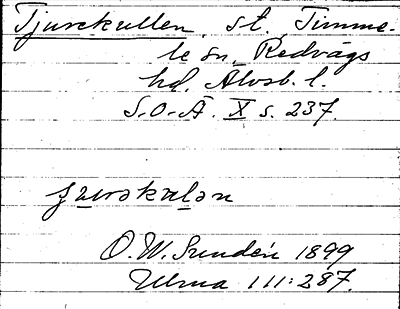 Tjurekullen, st, Timme-
le sn, Redvägs
hd, Älvsb. l.
S.O.Ä. X s. 237.
O. W. Sundén 1899
Ulma 111:287.